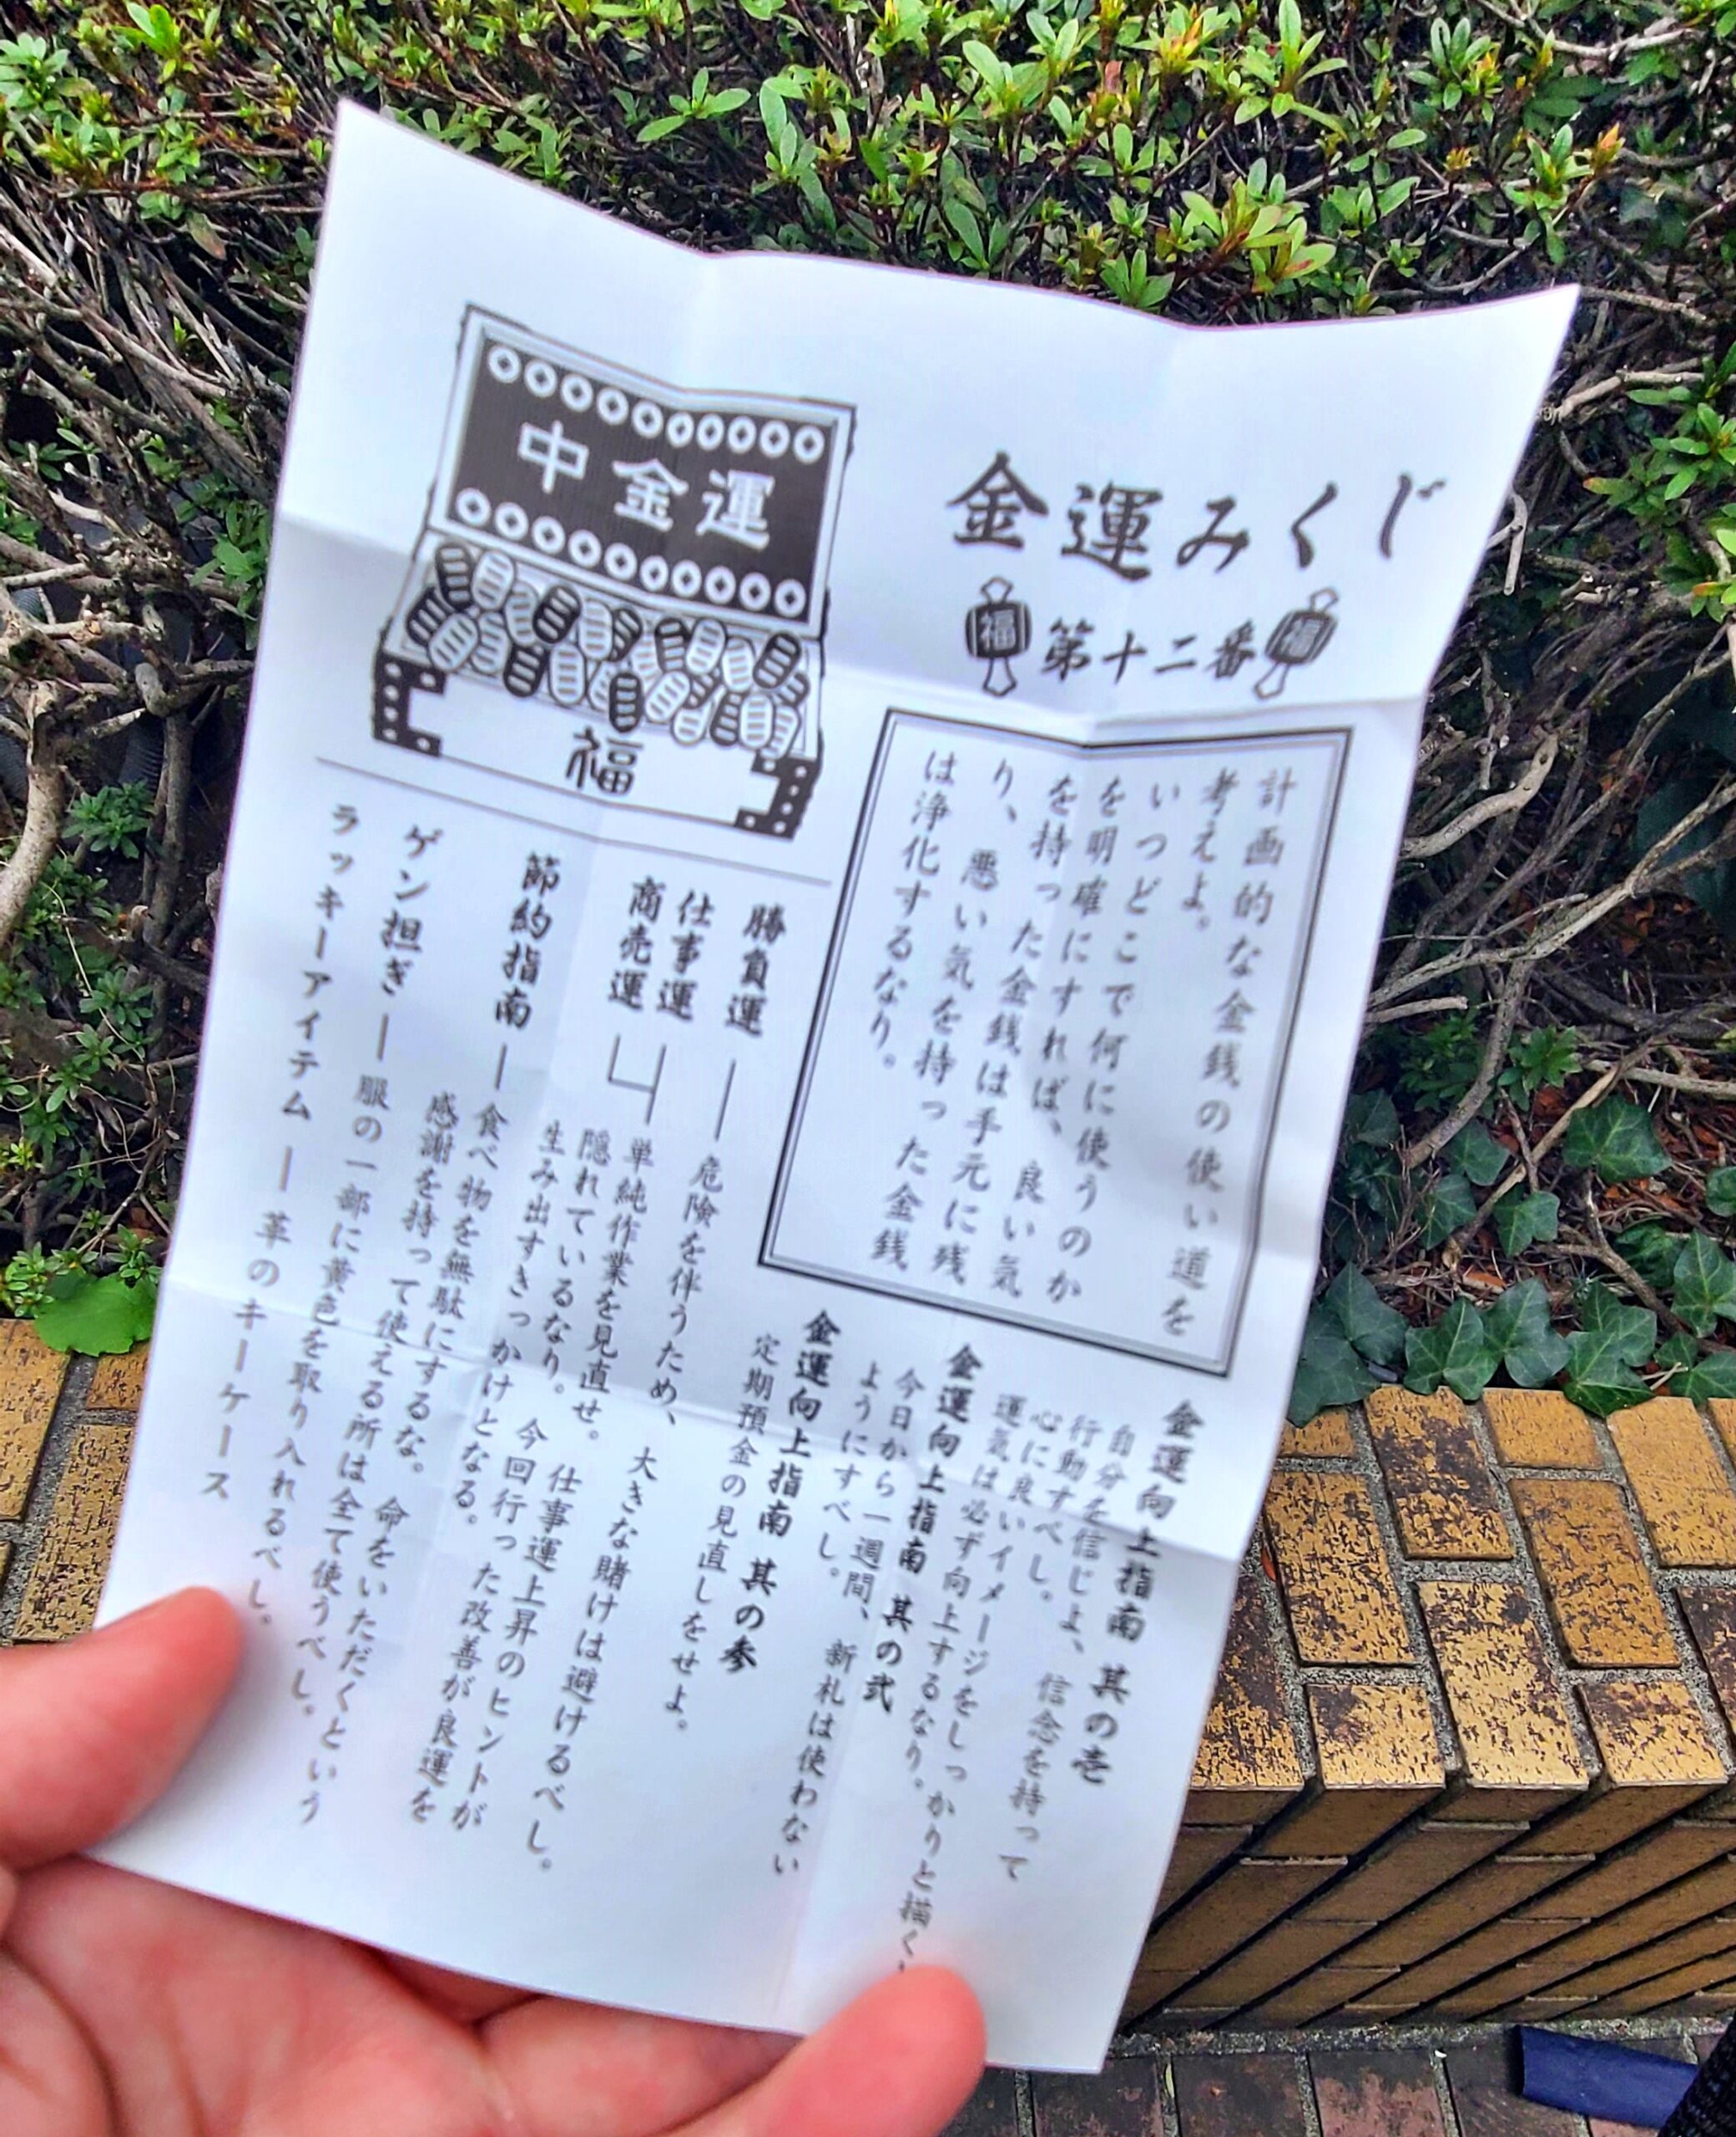 金運みくじ
福
第十二番
福
計画的な金銭の使い道を
考えよ。
いつどこで何に使うのか
を明確にすれば、良い気
を持った金銭は手元に残
り、悪い気を持った金銭
は浄化するなり。
中金運
福
金運向上指南 其の壱
自分を信じよ、信念を持って
行動すべし。
心に良いイメージをしっかりと描く、
運気は必ず向上するなり。
金運向上指南 其の弐
今日から一週間、新札は使わない
ようにすべし。
金運向上指南 其の参
定期預金の見直しをせよ。
勝負運 ― 危険を伴うため、大きな賭けは避けるべし。
仕事運
商売運
単純作業を見直せ。仕事運上昇のヒントが
隠れているなり。今回行った改善が良運を
生み出すきっかけとなる。
節約指南 ― 食べ物を無駄にするな。命をいただくという
感謝を持って使える所は全て使うべし。
ゲン担ぎ ― 服の一部に黄色を取り入れるべし。
ラッキーアイテム ― 革のキーケース